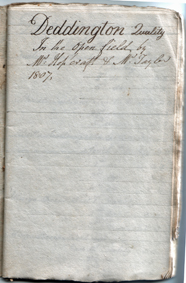 Deddington Quality
In the Open field, by
Mr Hopcraft & Mr Taylor
1807,